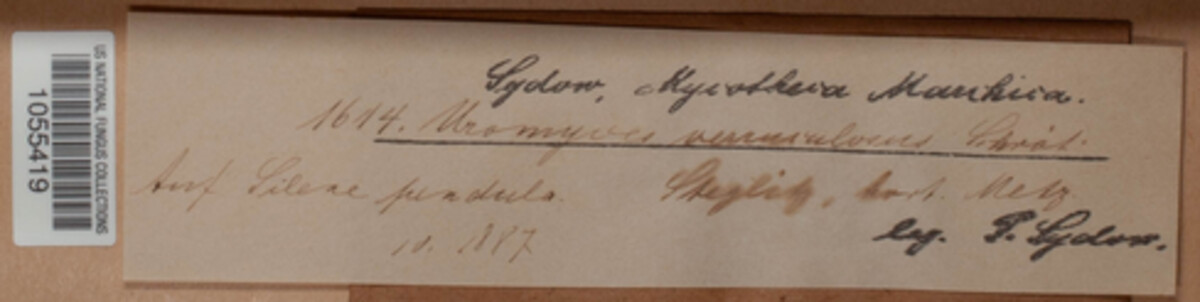 US NATIONAL FUNGUS COLLECTIONS
1055419
Sydow, Mycotheca Marchica.
1614. Uromyces verruculosus Schröt.
Auf Silene pendula. Steglitz, hort. Metz.
10. 1887
leg. P. Sydow.